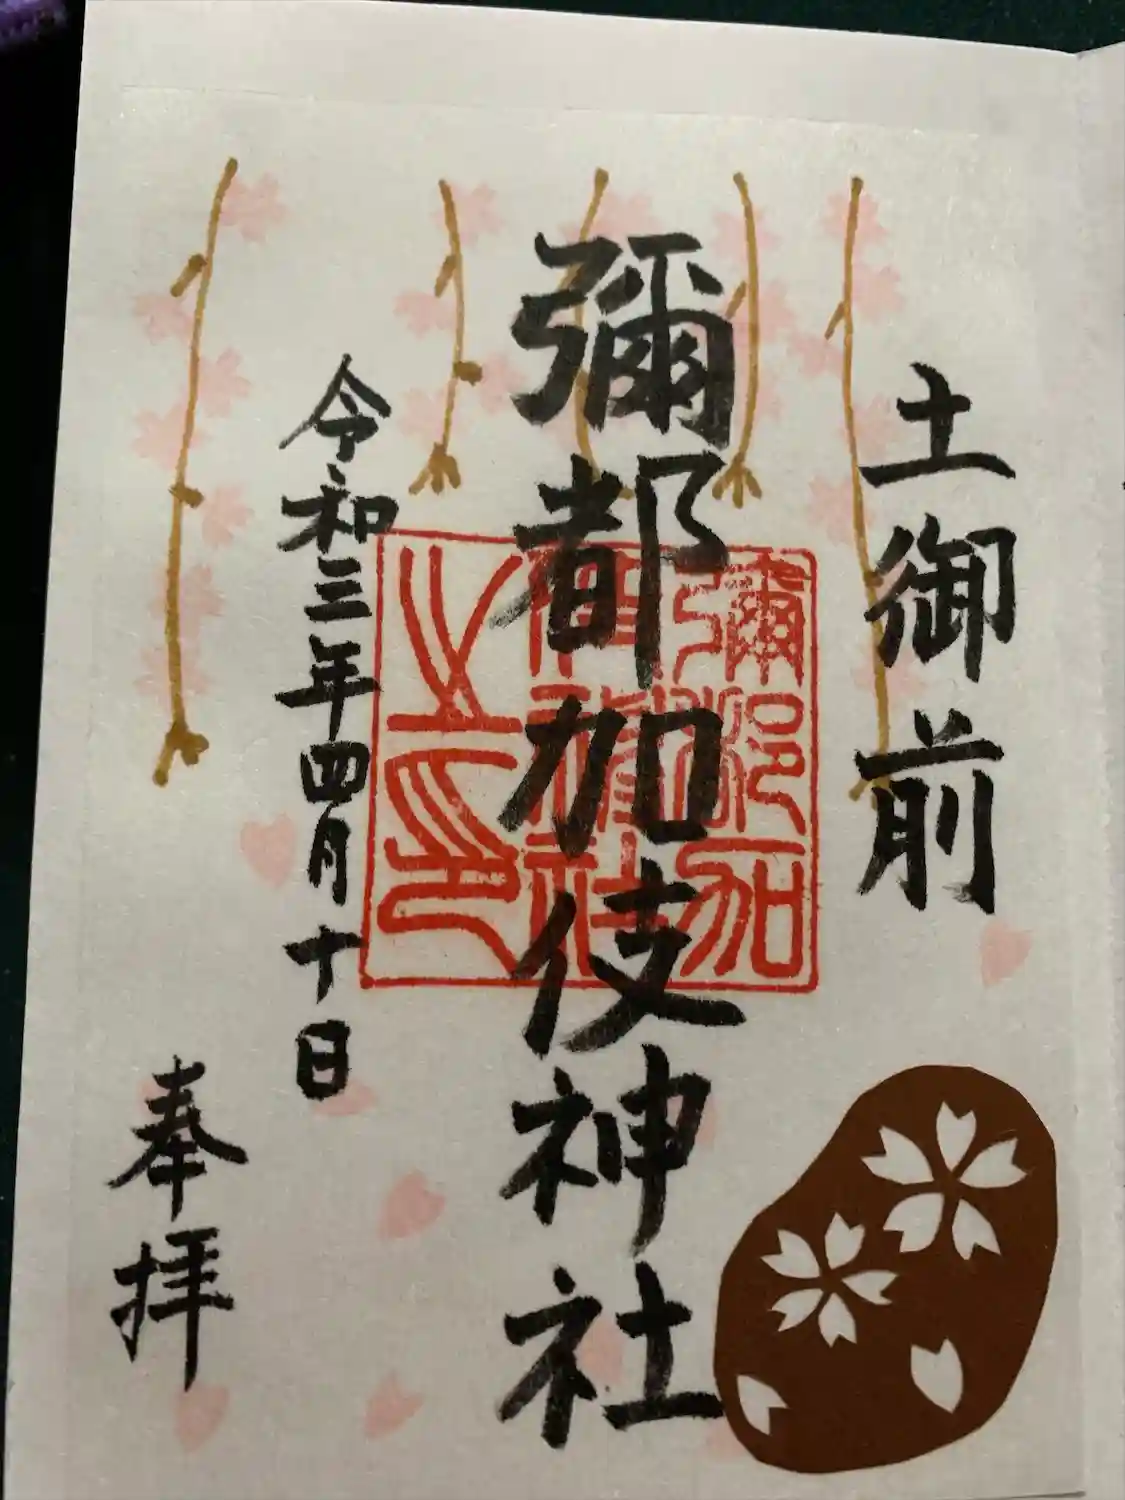 土御前
彌都加伎神社
彌都加
伎神社
之印
令和三年四月十日
奉拝